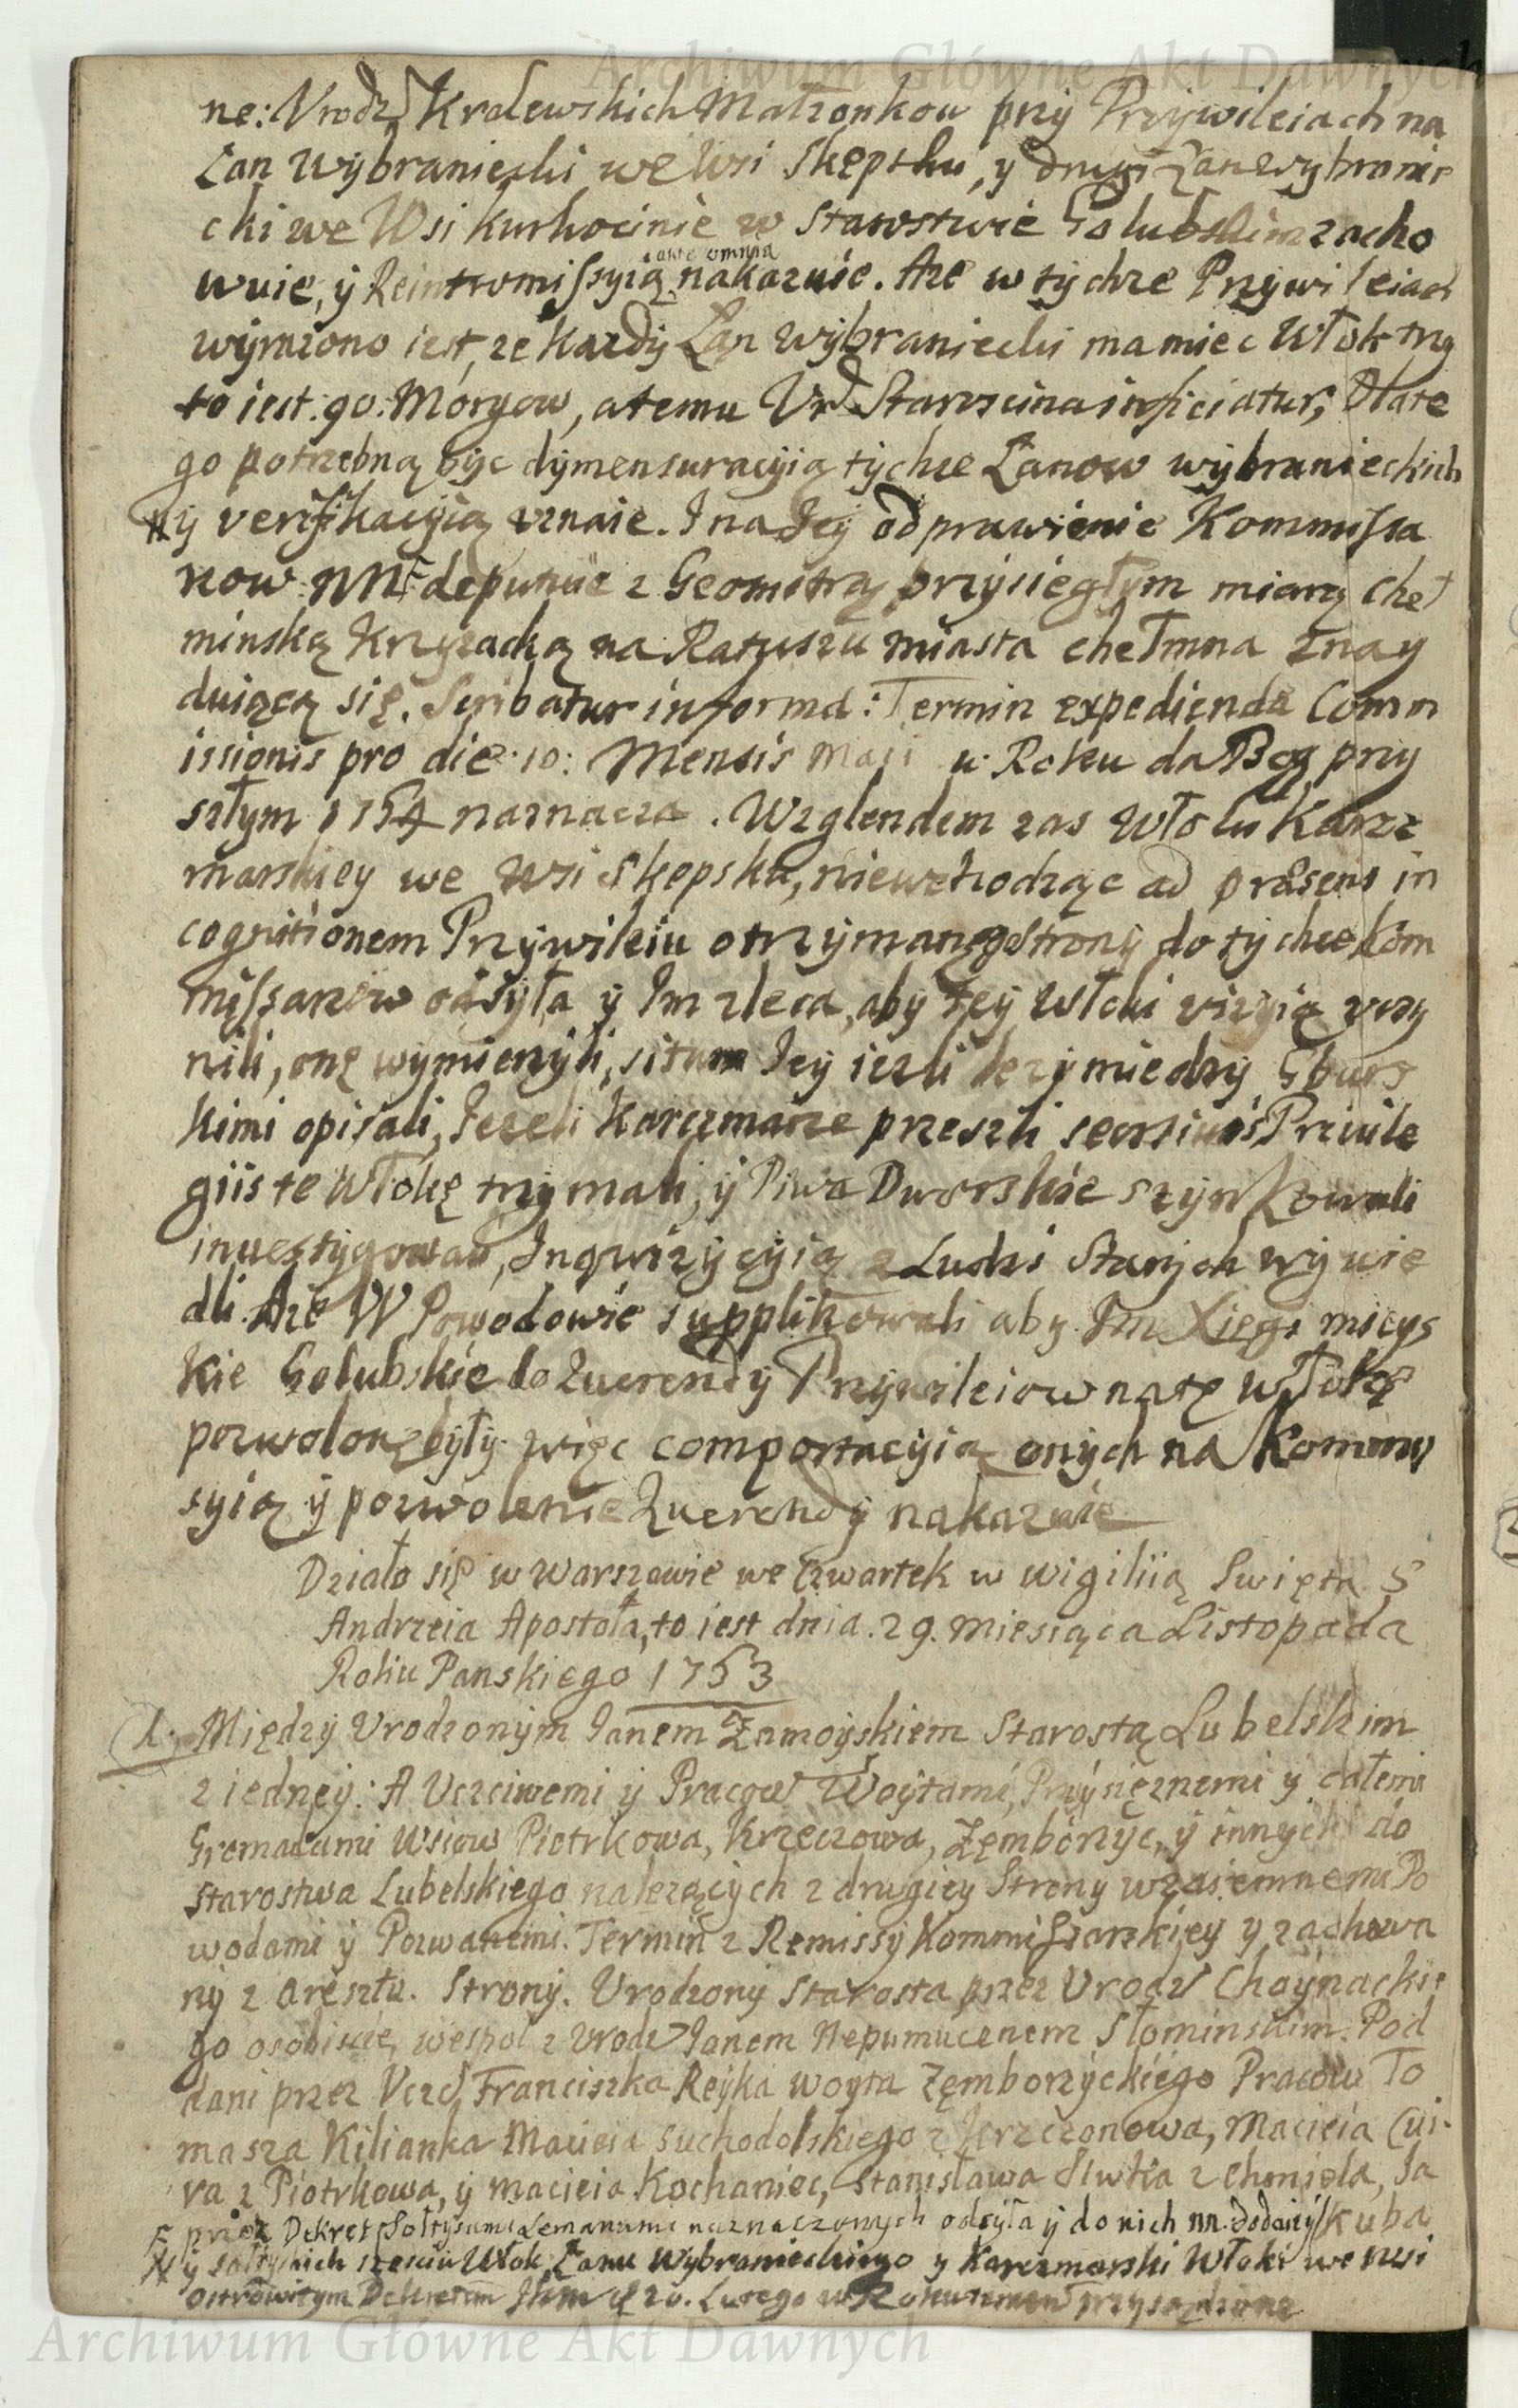 Archiwum Główne Akt Dawnych
ne: Vrodz Krolewskich Małzonkow przy Przywileiach na
Łan Wybraniecki we Wsi Skępsku, y drugi Łan wybranie
cki we Wsi Kurkocinie w Starostwie Golubskim zacho
wuie, y Reintromissyią ante omnia nakazuie. Aże w tychże Przywileiach
wyrażono iest, że każdy Łan Wybraniecki ma miec Włok trzy
to iest: 90: Morgow, a temu Vr. Starościna inficiatur, Dlate
go potrzebną być dymensuracyią tychże Łanow wybranieckich
# y verifikacyią vznaie. I na Jey odprawienie Kommissa
rzow: NN F deputuie z Geometrą przysięgłym miarą Cheł
minską Krzyżacką na Ratuszu miasta chełmna znay
duiącą się. Scribatur in forma: Termin expediendæ Comm
issionis pro die 10: Mensis Maji w Roku da Bog przy
szłym 1754 naznacza. Wzglendem zas Włoki Karcz
marskiey we wsi Skępsku, niewchodząc ad præsens in
cognitionem Przywileiu otrzymanego Strony do tychże Kom
missarzow odsyła y Im zleca, aby tey Włoki vizyią vczy
nili, onę wymierzyli, situm Jey ieżli leży miedzy Gburs
kimi opisali, Jeżeli Karczmarze przeszli seorsivis Privile
giis te Włokę trzymali, y Piwa Dworskie szynkowali
inwestygowali, Inqwizycyią z Ludzi Starych wywie
dli. Aże W Powodowie supplikowali aby Im Xięgi mieys
kie Golubskie do kwerendy Przywileiow na tę Włokę
pozwolone były. więc comportacyią onych na Kommis
syią y pozwolenie kwerendy nakazuie
Działo się w Warszawie we Czwartek w wigiliią Swięta S
Andrzeia Apostoła, to iest dnia. 29. miesiąca Listopada
Roku Panskiego 1753
1. Między Vrodzonym Janem Zamoyskiem Starostą Lubelskim
z iedney: A Vczciwemi y Pracow Woytami, Przysiężnemi y całemi
Gromadami Wsiow Piotrkowa, Krzczowa, Zęmborzyc, y innych do
Starostwa Lubelskiego należących z drugiey Strony wzaiemnemi Po
wodami y Pozwanemi. Termin z Remissy Kommissarskiey y zachowa
ny z aresztu. Strony. Vrodzony Starosta przez Vrodz Choynackie
go osobiscie, wespoł z Vrodz Janem Nepumucenem Słominskim. Pod
dani przez Vczc Franciszka Reyka woyta Zęmborzyckiego Pracow To
masza Kilianka Macieia Suchodolskiego z Krzczonowa, Macieia Cui-
ra z Piotrkowa, y Macieia Kochaniec, Stanisława Siwka z Chmiela, Ja
F przez Dekret Sołtysami Lemanami naznaczonych odsyła y do nich nn. dodaie kuba
# y Sołtyskich szesciu Włok, Łanu Wybranieckiego y Karczmarski Włoki we wsi
Ostrowitym Dekretem Jkm d 20. Lutego w Roku przysądzone
Archiwum Główne Akt Dawnych